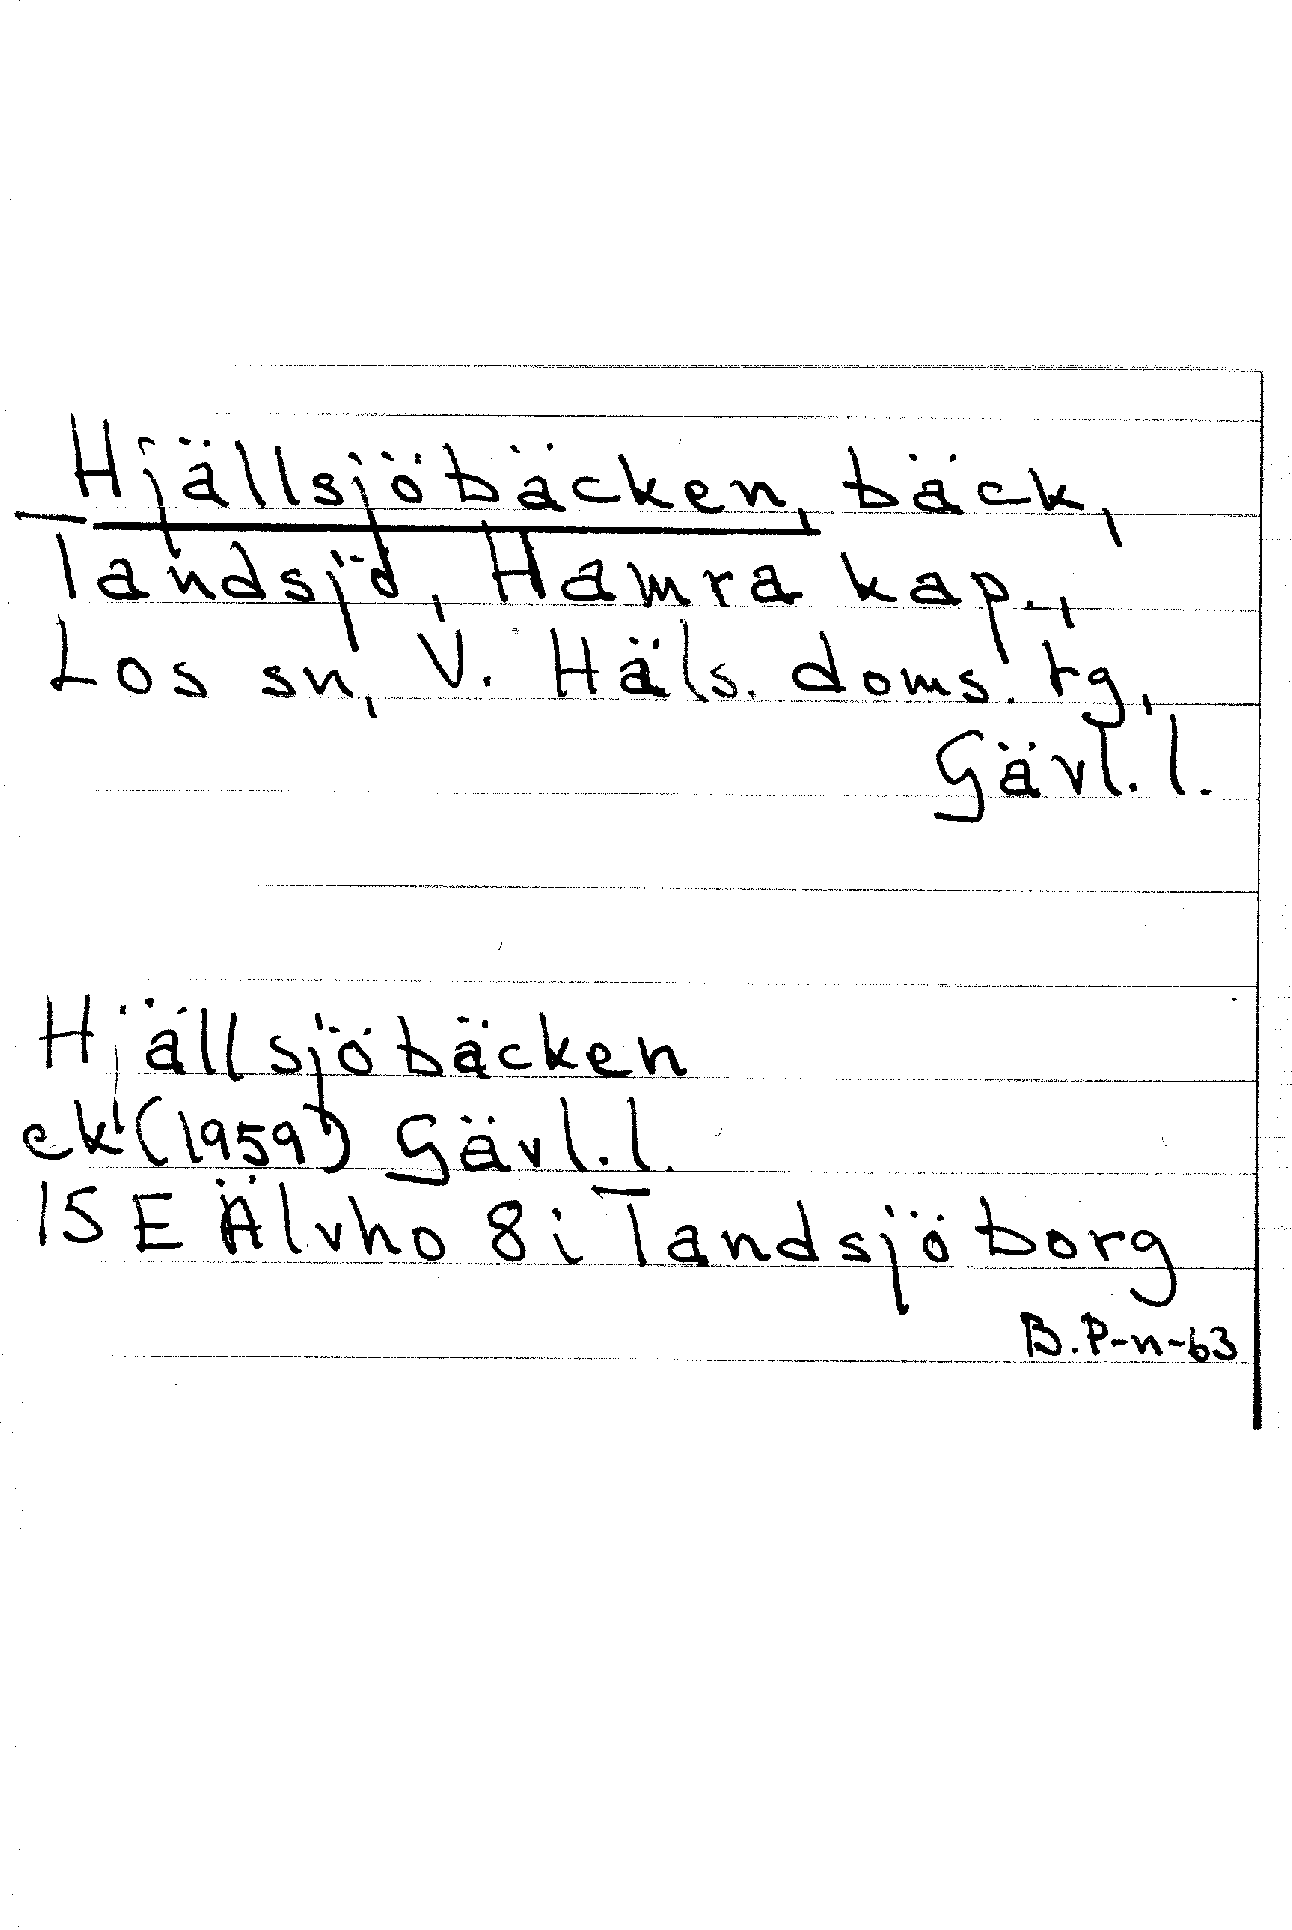 Hjällsjöbäcken, bäck,
landsjö, Hamra kap.,
Los sn, V. Häls. doms. tg,
Gävl. l.
Hjällsjöbäcken
ek (1959) Gävl. l.
15 E Älvho 8i landsjöborg
B. P-n-63